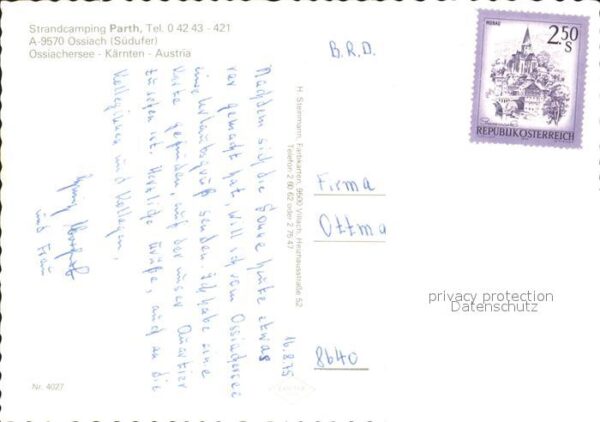 Strandcamping Parth, Tel. 0 42 43 - 421
A-9570 Ossiach (Südufer)
Ossiachersee - Kärnten - Austria
16.8.75
Nachdem sich die Sonne heute etwas
rar gemacht hat, will ich vom Ossiachersee
einen Urlaubsgruß senden. Ich habe eine
Karte gefunden, auf der unser Quartier
zu sehen ist. Herzliche Grüße, auch an die
Kolleginnen und Kollegen,
und Frau
Nr. 4027
H. Steinmann, Farbkarten, 9500 Villach, Heizhausstraße 52
Telefon 2 60 62 oder 2 75 47
B.R.D.
Firma
Ottma
8640
MURAU
2.50
S
REPUBLIK ÖSTERREICH
privacy protection
Datenschutz